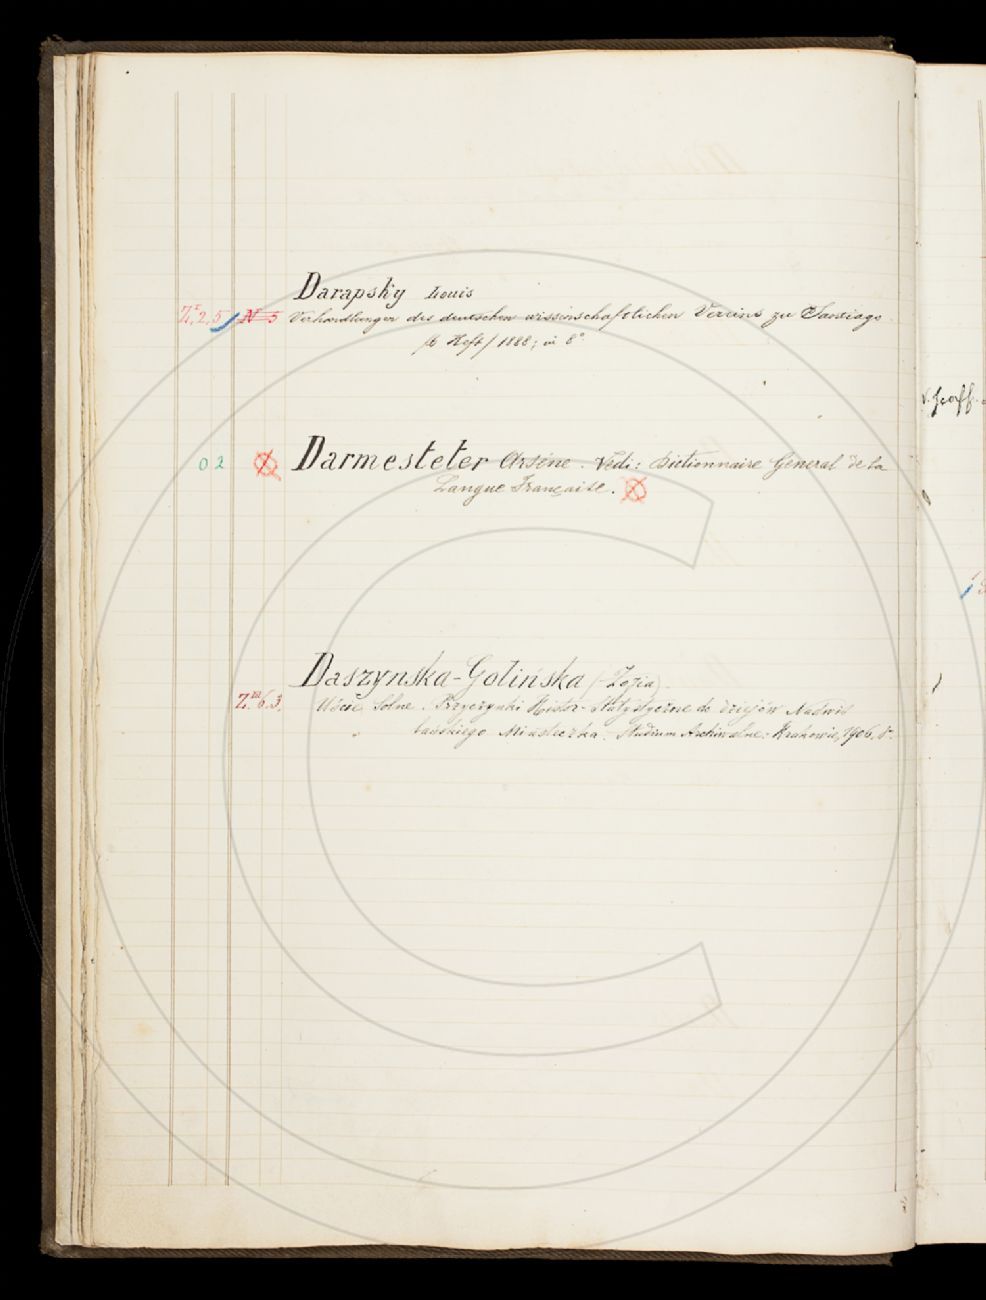 Darapsky Louis
Z.r,2,5 N 5 Verhandlungen des deutschen wissenschaftlichen Vereins zu Santiago.
/6 Heft/ 1888; in 8°
02 Darmesteter Arsène. Vedi: Dictionnaire Général de la
Langue Française.
Daszynska-Golińska (-Zofia).
Z.m 6.3. Uście Solne. Przyczynki Histor-Statystyczne do dziejów Nadwiś
lańskiego Miasteczka. Studium Archiwalne: Krakowie, 1906, 8°
v. Graff